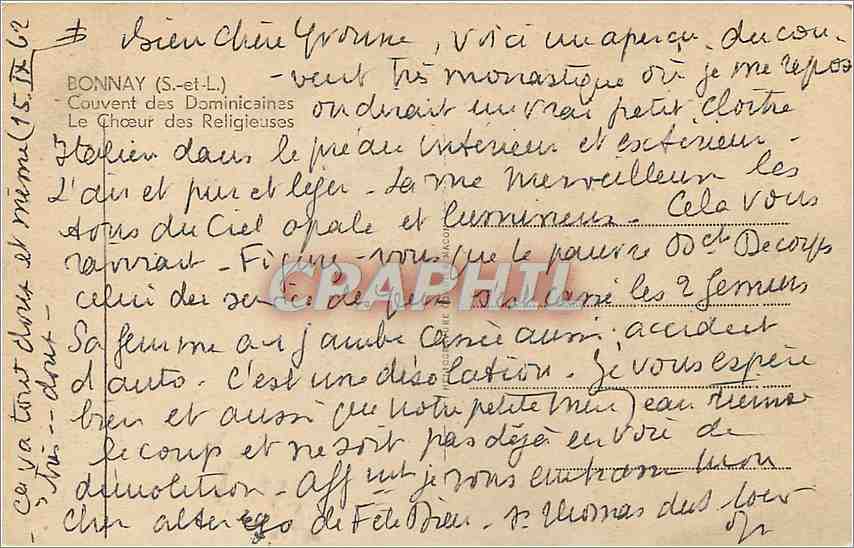 Bien chère Yvonne, voici un aperçu du cou-
vent très monastique où je me repose
BONNAY (S.-et-L.)
Couvent des Dominicaines
Le Chœur des Religieuses
on dirait un vrai petit cloître
Italien dans le préau intérieur et extérieur.
L'air et pur et léger - La vue merveilleuse les
tons du Ciel opale et lumineux. Cela vous
ravirait - Figurez-vous que le pauvre Doct Decorps
celui du service de cassé les 2 femurs
Sa femme a 1 jambe cassée aussi, accident
d'auto. C'est une désolation. Je vous espère
bien et aussi que notre petite Jean tienne
le coup et ne soit pas déjà en voie de
démolition - Aff nt je vous embrasse mon
cher alter ego de Fête Dieu - St Thomas
op
- ça va tout doux et même (15. IX 62
très -- doux -
CPARHTI